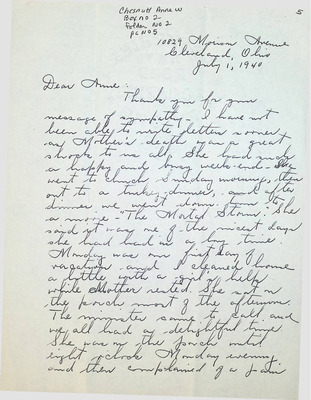 Chesnutt Anne W
Box no 2
Folder No 2
pc No 5
5
10829 Morison Avenue
Cleveland, Ohio
July 1, 1940
Dear Anne:
Thank you for your
message of sympathy. I have not
been able to write letters sooner,
as Mother's death was a great
shock to us all. She had such
a happy and busy week-end. She
went to church Sunday morning, then
out to a turkey dinner, and after
dinner we went down town to
a movie - "The Mortal Storm". She
said it was one of the nicest days
she had had in a long time.
Monday was our first day of
vacation and I cleaned house
a little with a girl's help
while Mother rested. She sat on
the porch most of the afternoon.
The minister came to call and
we all had a delightful time.
She was on the porch until
eight o'clock Monday evening
and then complained of a pain